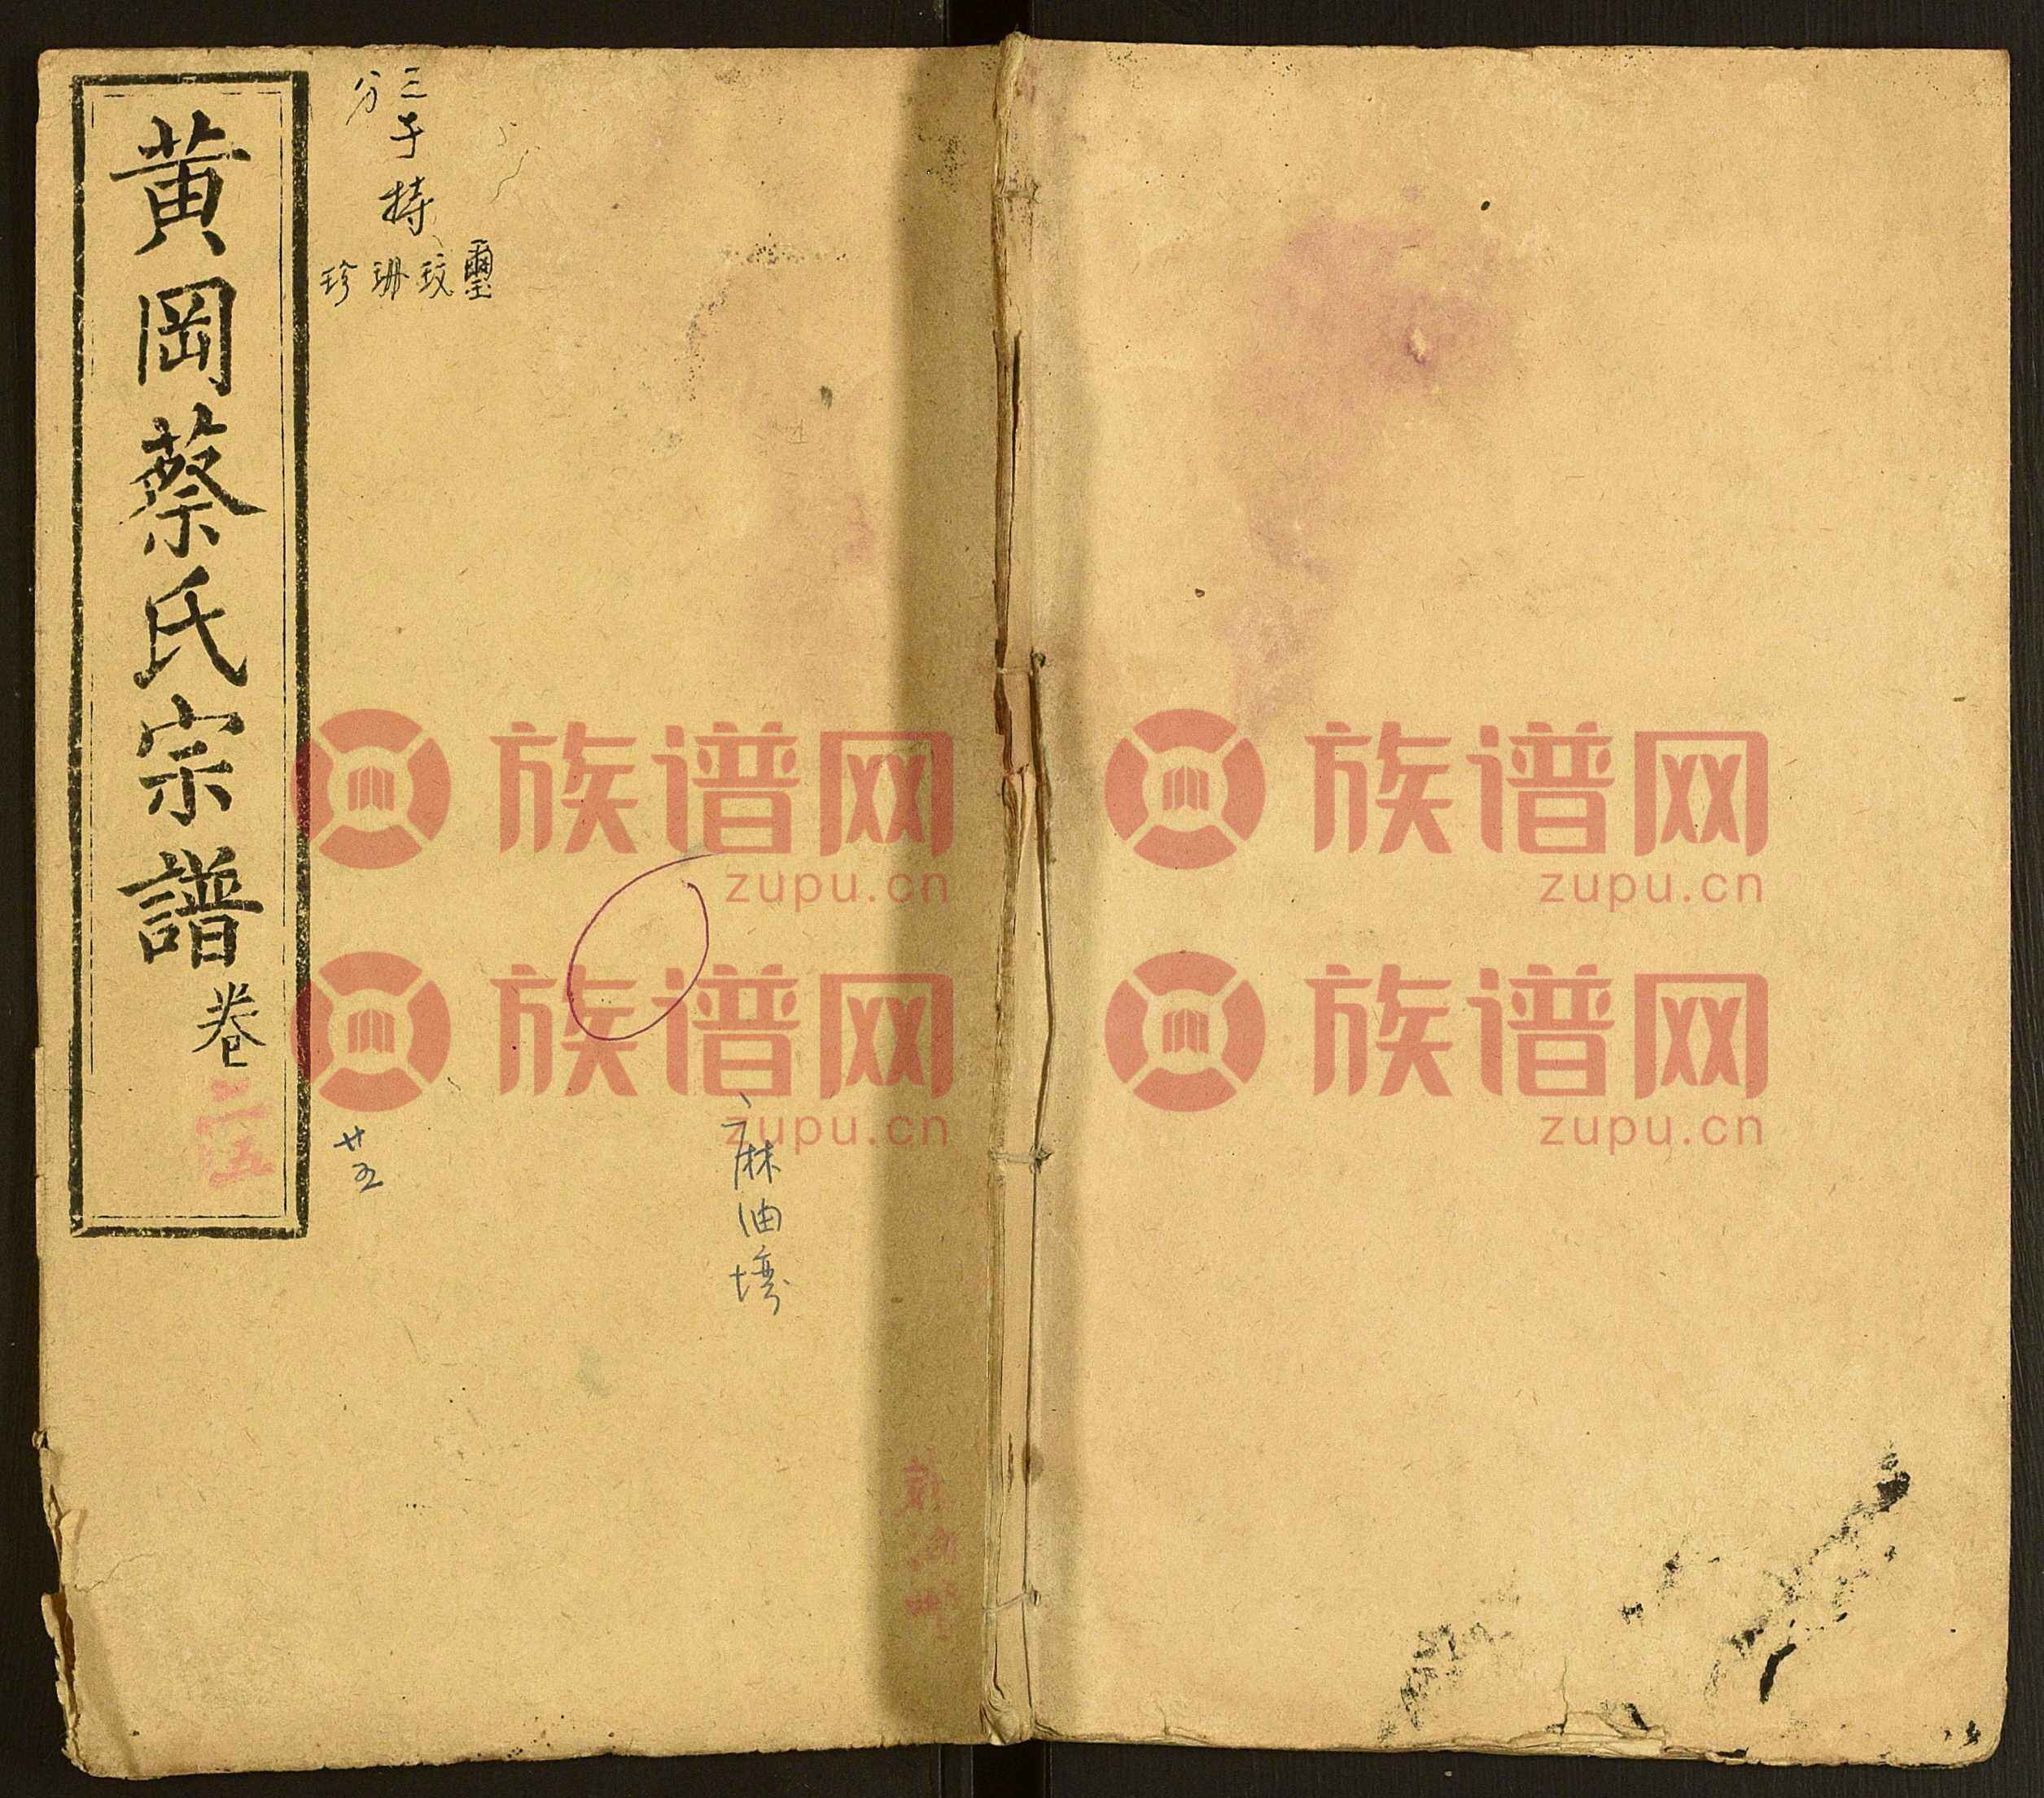 黄岡蔡氏宗譜卷二五
三子持
分
璽玫珊珍
廿五
麻油塆
族谱网
zupu.cn
族谱网
zupu.cn
族谱网
zupu.cn
族谱网
zupu.cn